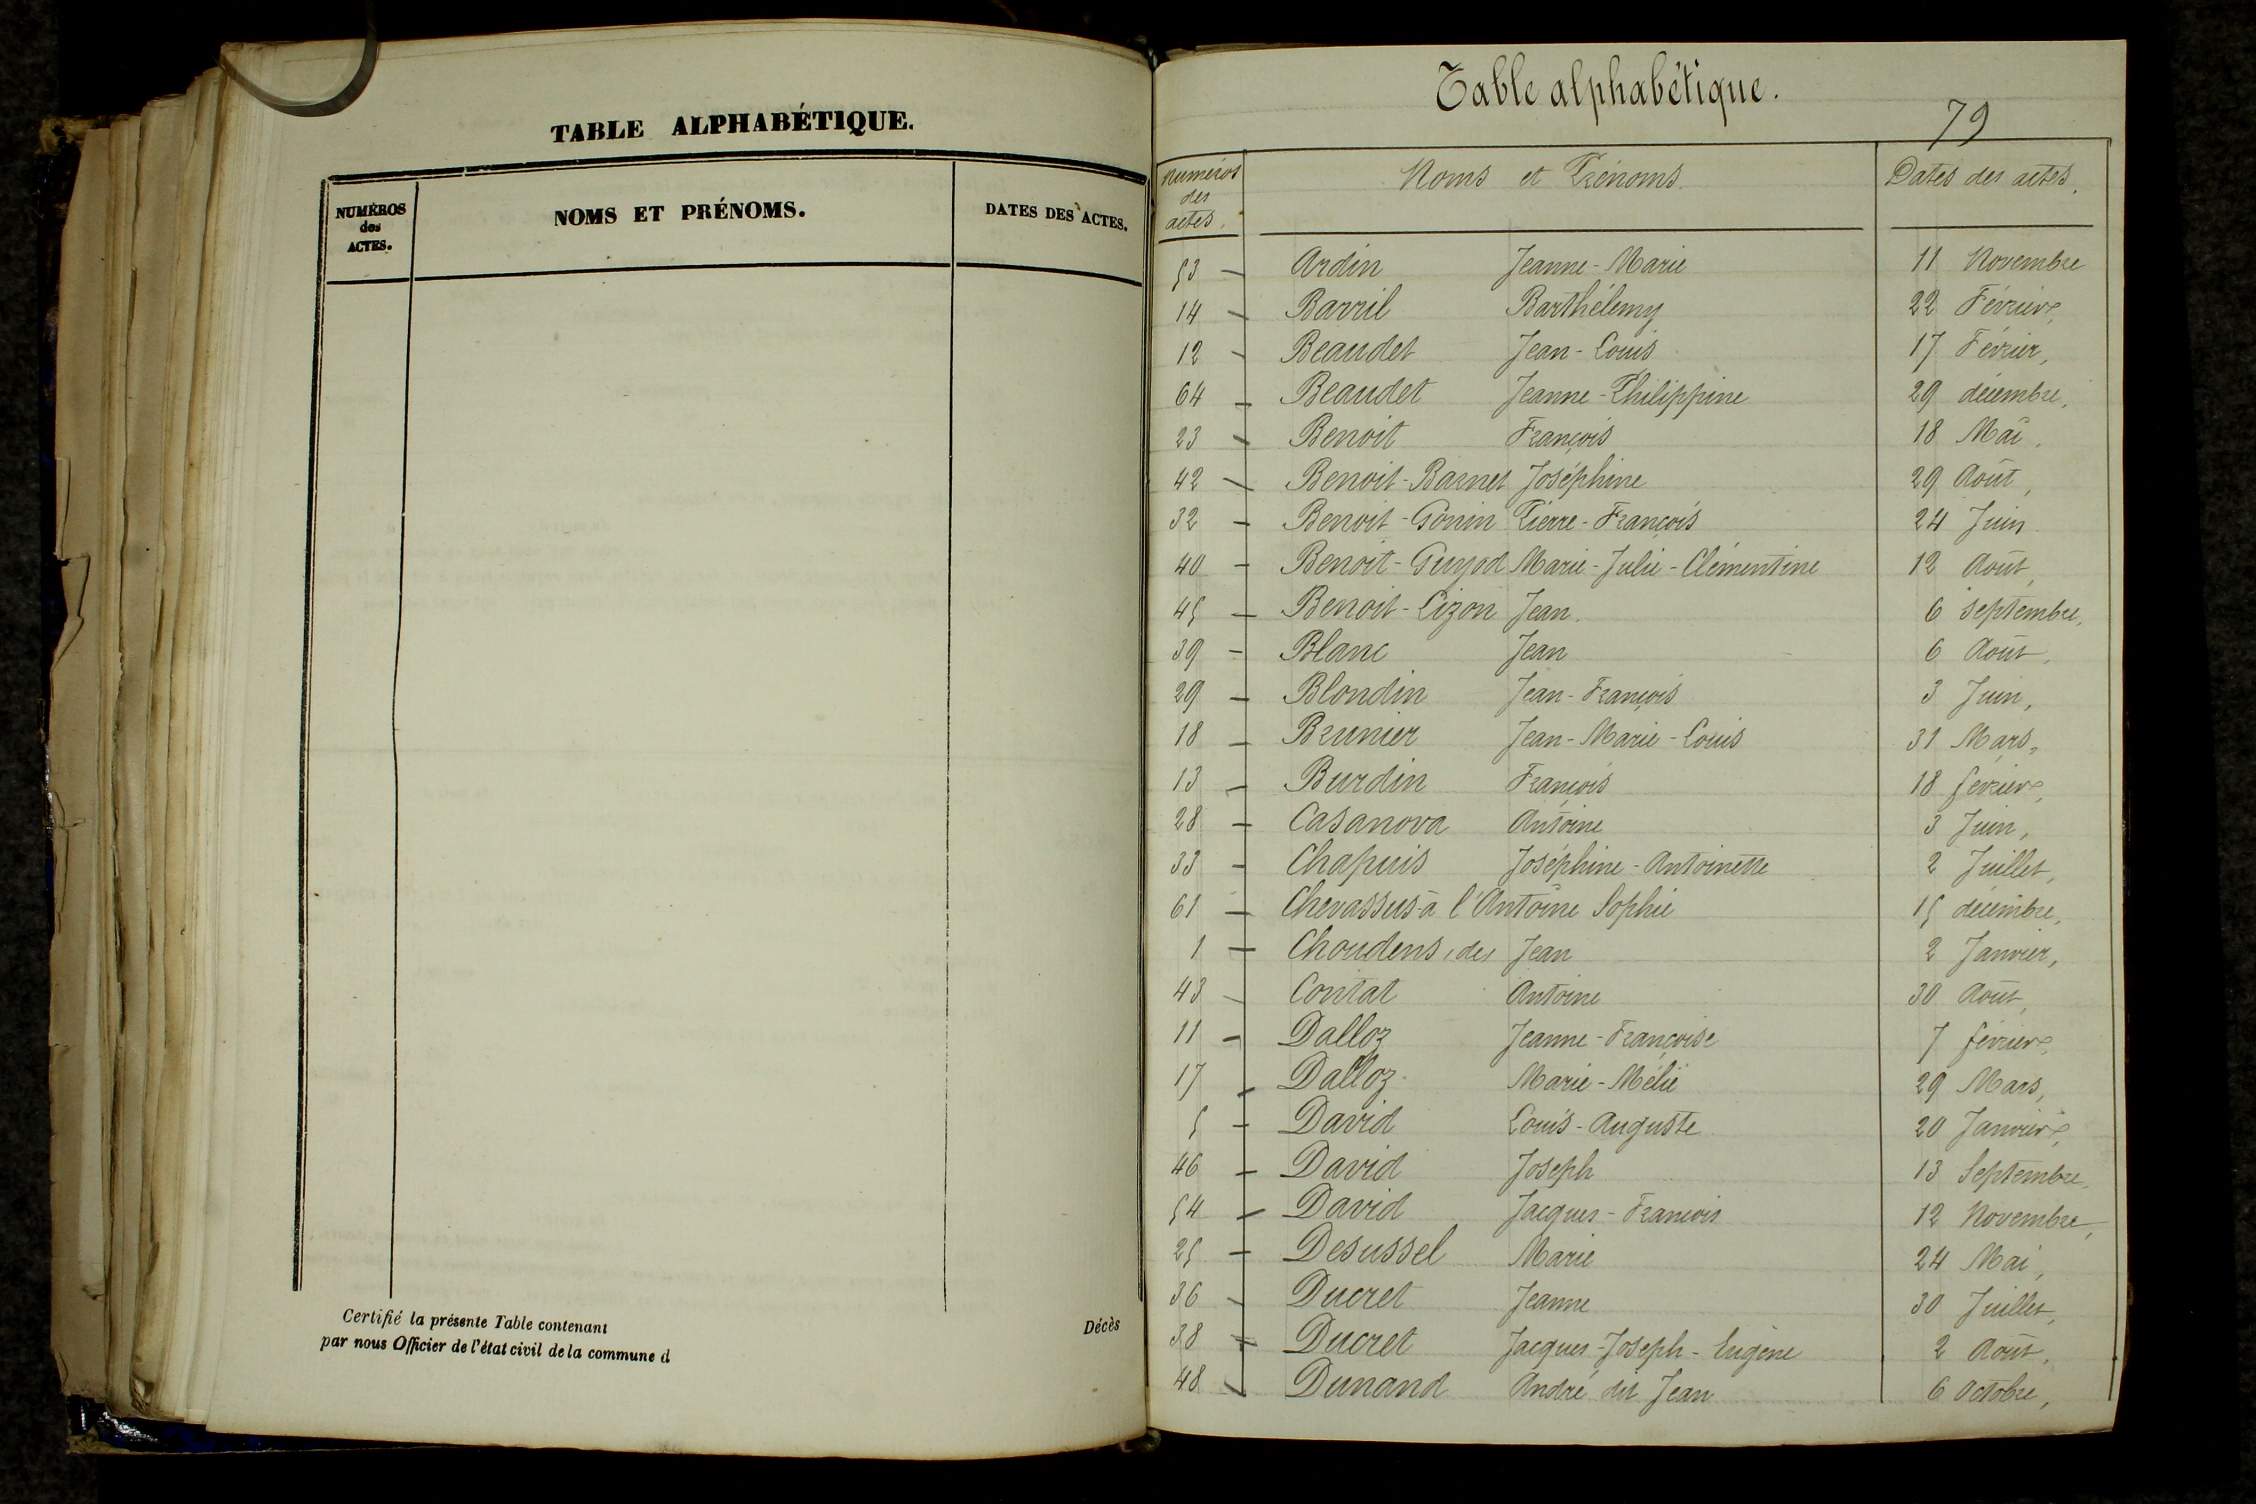 TABLE ALPHABÉTIQUE.
NUMÉROS
des
ACTES.
NOMS ET PRÉNOMS.
DATES DES ACTES.
Certifié la présente Table contenant Décès
par nous Officier de l'état civil de la commune d
Table alphabétique.
79
Numéros
des
actes.
Noms et Prénoms.
Dates des actes.
53 — Ardin Jeanne-Marie 11 Novembre
14 — Barril Barthélemy 22 Février,
12 — Beaudet Jean-Louis 17 Février,
64 — Beaudet Jeanne-Philippine 29 décembre,
23 — Benoit François 18 Mai,
42 — Benoit-Barnet Joséphine 29 Août,
32 — Benoit-Gonin Pierre-François 24 Juin
40 — Benoit-Guyod Marie-Julie-Clémentine 12 Août,
45 — Benoit-Lizon Jean. 6 Septembre,
39 — Blanc Jean 6 Août,
29 — Blondin Jean-François 3 Juin,
18 — Brunier Jean-Marie-Louis 31 Mars,
13 — Burdin François 18 février,
28 — Casanova Antoine 3 Juin,
33 — Chapuis Joséphine-Antoinette 2 Juillet,
61 — Chevassus-à l'Antoine Sophie 15 décembre,
1 — Choudens (de) Jean 2 Janvier,
43 — Contat Antoine 30 Août,
11 — Dalloz Jeanne-Françoise 7 février,
17 — Dalloz Marie-Mélie 29 Mars,
5 — David Louis-Auguste 20 Janvier,
46 — David Joseph 13 Septembre,
54 — David Jacques-François 12 Novembre,
25 — Desussel Marie 24 Mai,
36 — Ducret Jeanne 30 Juillet,
38 — Ducret Jacques-Joseph-Eugène 2 Août,
48 — Dunand André dit Jean 6 Octobre,